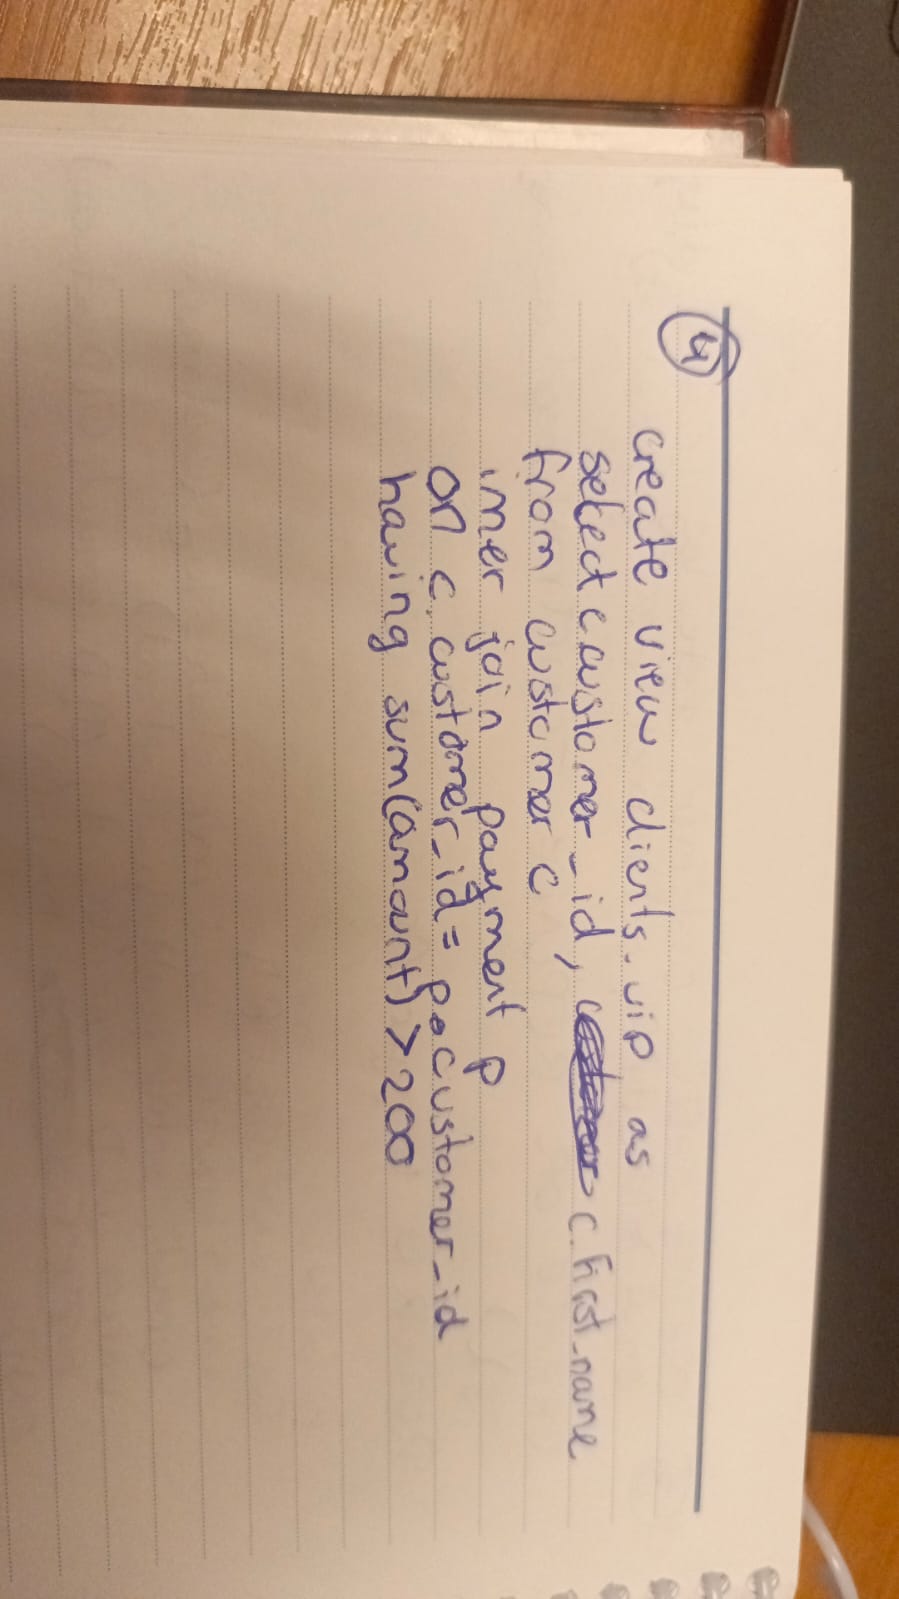 4
create view clients_vip as
select c.customer_id, c.first_name
from customer c
inner join payment p
on c.customer_id = p.customer_id
having sum(amount) > 200